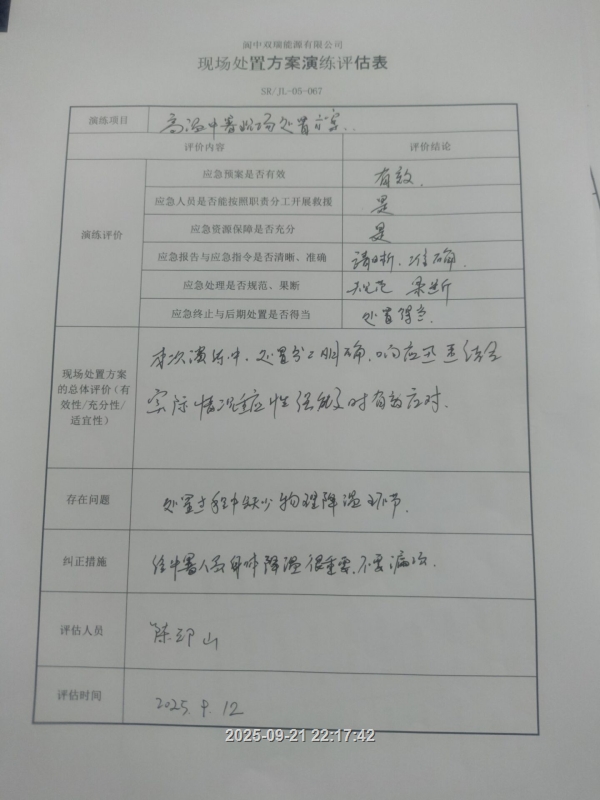 阆中双瑞能源有限公司
现场处置方案演练评估表
SR/JL-05-067
演练项目 高温中暑现场处置方案.
评价内容 评价结论
演练评价
应急预案是否有效 有效.
应急人员是否能按照职责分工开展救援 是
应急资源保障是否充分 是
应急报告与应急指令是否清晰、准确 清晰、准确.
应急处理是否规范、果断 规范 果断
应急终止与后期处置是否得当 处置得当.
现场处置方案的总体评价（有效性/充分性/适宜性）
本次演练中,处置分工明确,响应迅速结合
实际情况适应性强能及时有效应对.
存在问题 处置过程中缺少物理降温环节.
纠正措施 给中暑人员身体降温很重要,不要漏项.
评估人员 陈邛山
评估时间 2025.9.12
2025-09-21 22:17:42